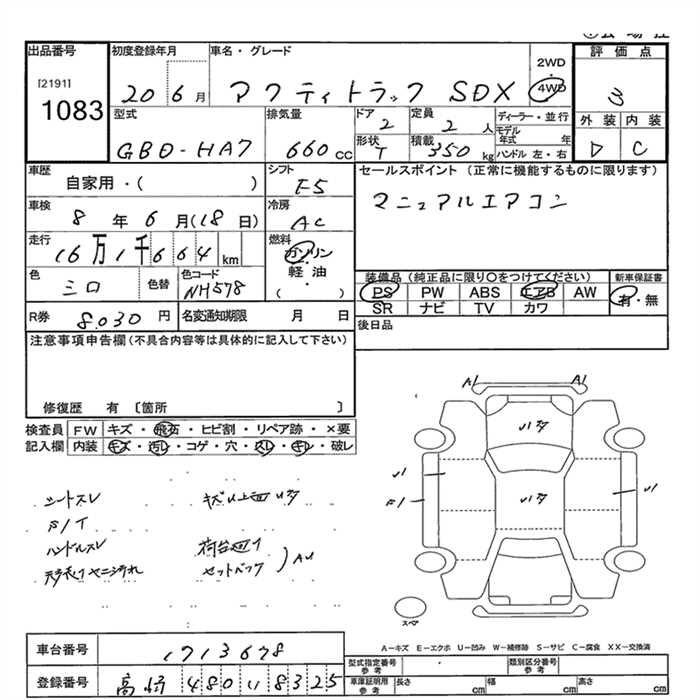 出品番号 初度登録年月 車名・グレード 評価点
[2191]
1083
20 6月 アクティトラック SDX 2WD 4WD 3
型式 排気量 ドア 2 定員 2人 ディーラー・並行 外装 内装
GBD-HA7 660cc 形状 T 積載 350kg モデル年式 年 ハンドル 左・右 D C
車歴 シフト セールスポイント (正常に機能するものに限ります)
自家用・( ) F5 マニュアルエアコン
車検 冷房
8年6月(18日) AC
走行 燃料
16万1千664km ガソリン・軽油・( )
色 色替 色コード 装備品 (純正品に限り○をつけてください) 新車保証書
シロ NH578 PS PW ABS エアB AW 有・無
SR ナビ TV カワ
R券 8.030円 名変通知期限 月 日 後日品
注意事項申告欄(不具合内容等は具体的に記入して下さい)
修復歴 有 〔箇所 〕
検査員 FW キズ・飛石・ヒビ割・リペア跡・×要
記入欄 内装 キズ・汚レ・コゲ・穴・スレ・キレ・破レ
A1 A1
シートスレ
ハンドルスレ 荷台廻り
セットバック
A1
スペア
A-キズ E-エクボ U-凹み W-補修跡 S-サビ C-腐食 XX-交換済
車台番号 1713678
型式指定番号 参考 類別区分番号 参考
登録番号 高崎 480 い 8325
車庫証明用 参考 長さ cm 幅 cm 高さ cm